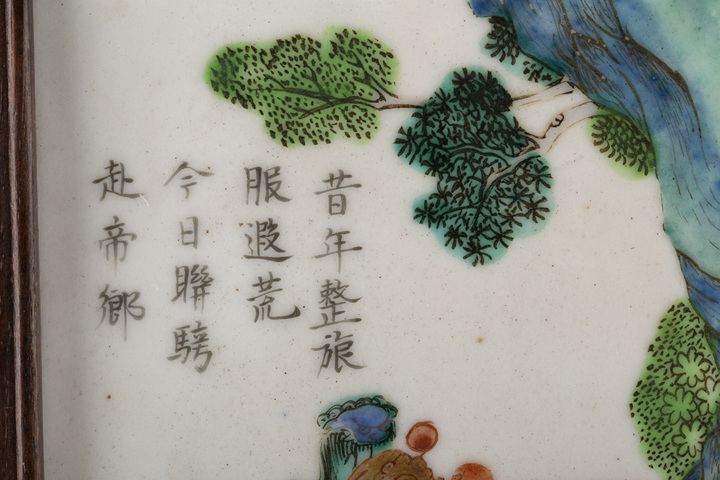 昔年整旅
服遐荒
今日聯騎
赴帝鄉